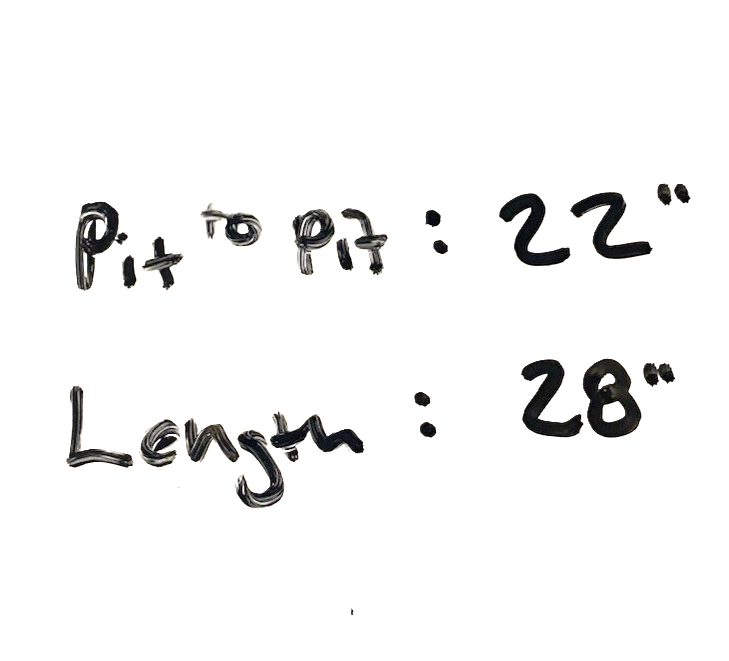 Pit to Pit : 22"
Length : 28"